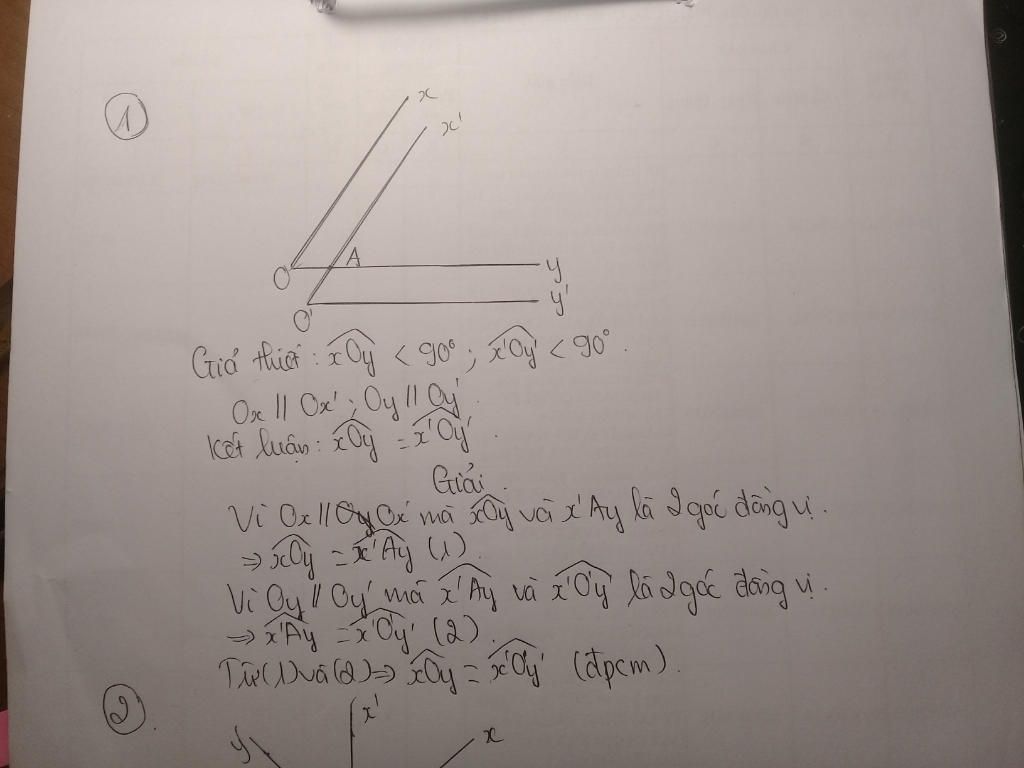 1
x
x'
A
O
y
O'
y'
Giả thiết: xOy < 90°; x'Oy' < 90°.
Ox // Ox'; Oy // Oy'.
Kết luận: xOy = x'Oy'.
Giải.
Vì Ox // Oy Ox' mà xOy và x'Ay là 2 góc đồng vị.
⇒ xOy = x'Ay (1).
Vì Oy // Oy' mà x'Ay và x'O'y' là 2 góc đồng vị.
⇒ x'Ay = x'Oy' (2).
Từ (1) và (2) ⇒ xOy = x'O'y' (đpcm).
2.
x'
y
x